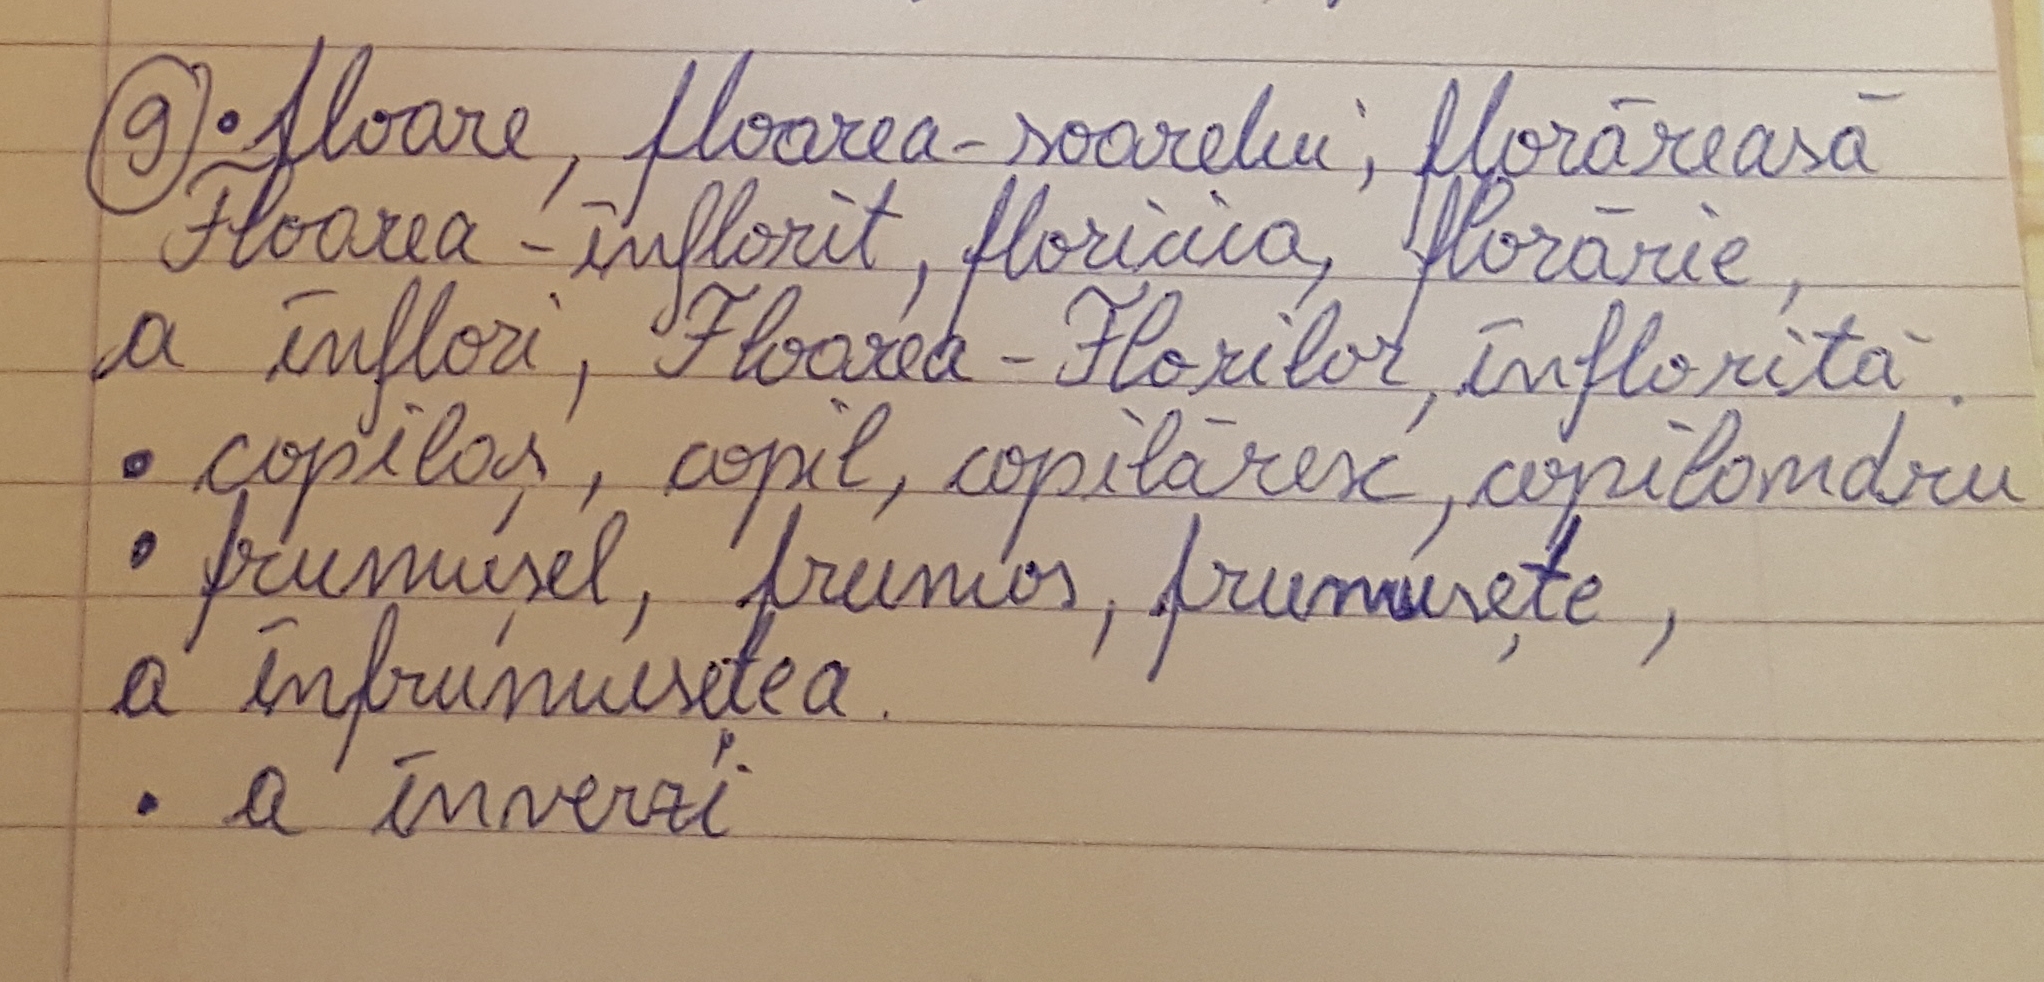 9 • floare, floarea-soarelui, florăreasă
Floarea-înflorit, floricica, florărie,
a înflori, Floarea-Florilor, înflorită.
• copilaș, copil, copilăresc, copilandru
• frumușel, frumos, frumusețe,
a înfrumusetea.
• a înverzi